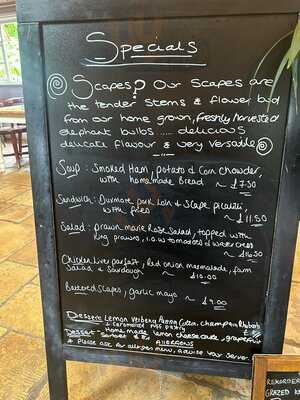 Specials
Scapes? Our Scapes are
the tender stems & flower bud
from our home grown, freshly harvested
elephant bulbs ..... delicious
delicate flavour & very versatile
Soup: Smoked Ham, potato & corn chowder,
with homemade bread ~ £7.50
Sandwich: pork loin & Scape
with fries ~ £11.50
Salad: prawn marie Rose Salad, topped with
King prawns, tomatoes & water cress
~ £16.50
Chicken liver parfait, Red onion marmalade, farm
Salad & Sourdough ~ £10.00
Battered Scapes, garlic mayo ~ £9.00
Dessert: Lemon Verbena Panna Cotta, champagne Rhubarb
& caramelised puff pastry
Dessert - home made lemon cheesecake, grapefruit
Allergens
* Please ask for allergen menu, advise your server